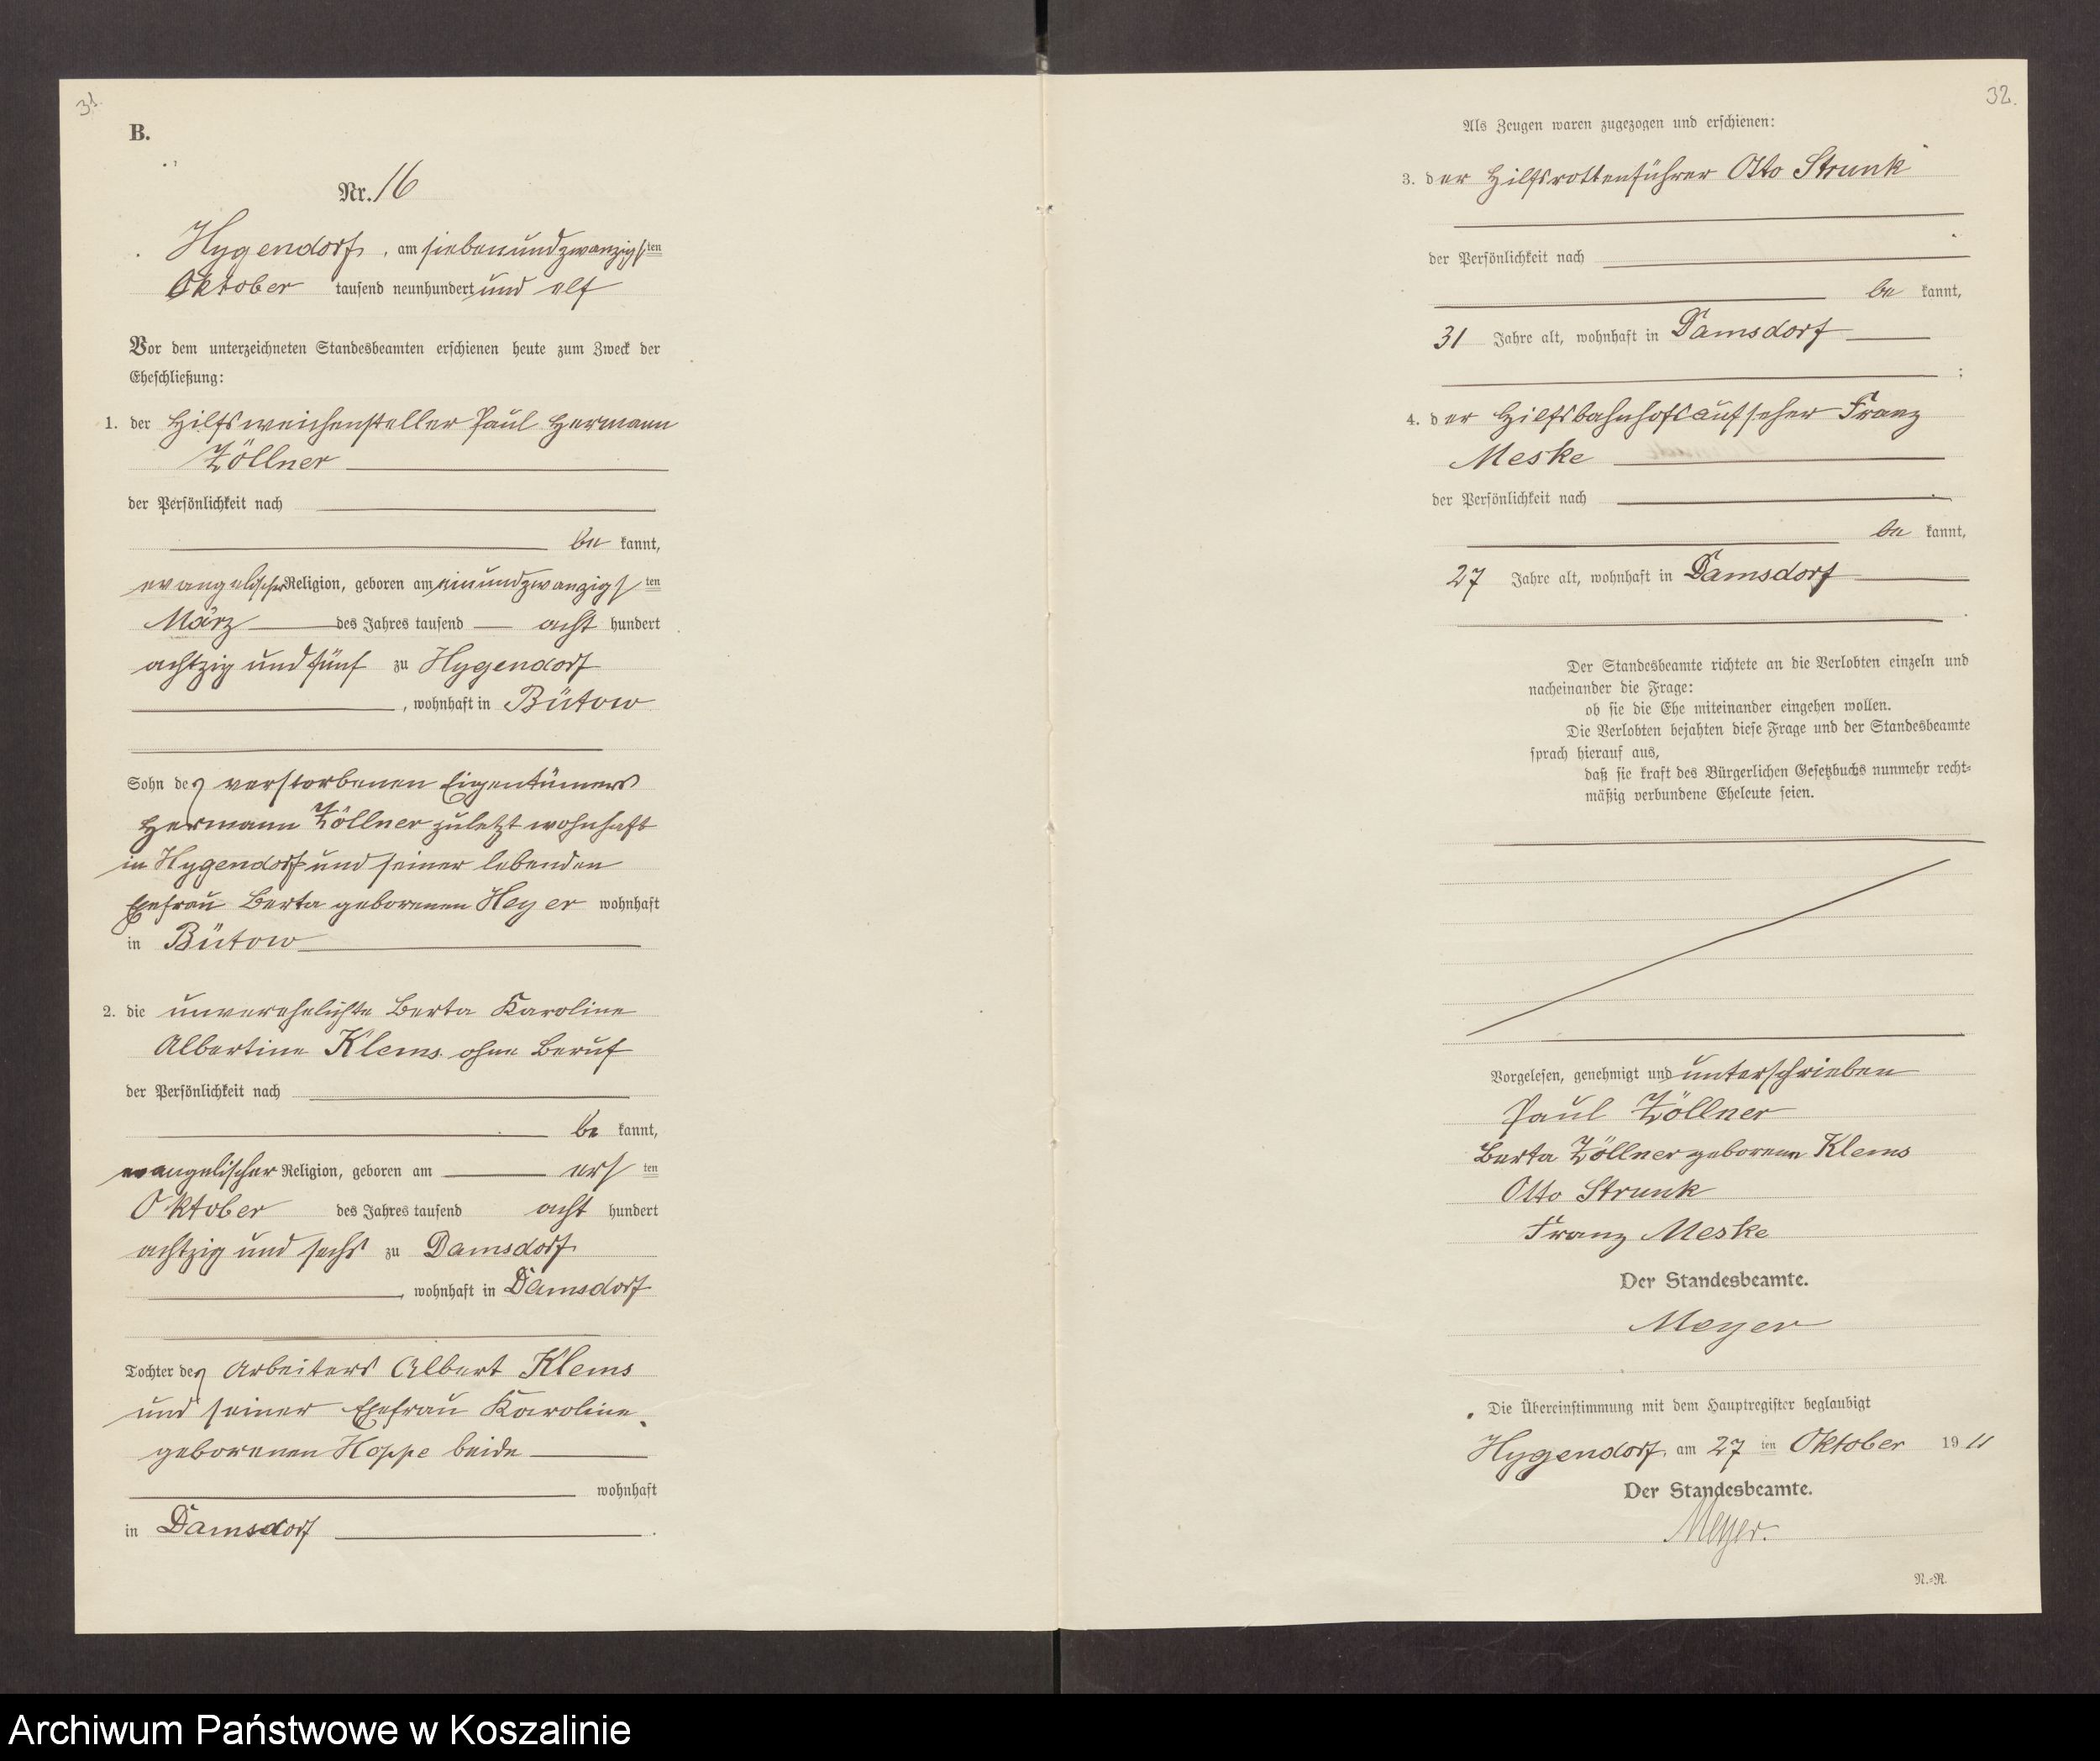 31.
B.
Nr. 16
Hygendorf, am siebenundzwanzigsten
Oktober tausend neunhundert und elf
Vor dem unterzeichneten Standesbeamten erschienen heute zum Zweck der
Eheschließung:
1. der Hilfsweichensteller Paul Hermann
Zöllner
der Persönlichkeit nach
be kannt,
evangelischer Religion, geboren am einundzwanzigsten
März des Jahres tausend acht hundert
achtzig und fünf zu Hygendorf
, wohnhaft in Bütow
Sohn des verstorbenen Eigentümers
Hermann Zöllner zuletzt wohnhaft
in Hygendorf und seiner lebenden
Ehefrau Berta geborenen Heyer wohnhaft
in Bütow
2. die unverehelichte Berta Karoline
Albertine Klems ohne Beruf
der Persönlichkeit nach
be kannt,
evangelischer Religion, geboren am ersten
Oktober des Jahres tausend acht hundert
achtzig und sechs zu Damsdorf
, wohnhaft in Damsdorf
Tochter des Arbeiters Albert Klems
und seiner Ehefrau Karoline
geborenen Hoppe beide
wohnhaft
in Damsdorf .
32.
Als Zeugen waren zugezogen und erschienen:
3. der Hilfsrottenführer Otto Strunk
der Persönlichkeit nach
be kannt,
31 Jahre alt, wohnhaft in Damsdorf
;
4. der Hilfsbahnhofsaufseher Franz
Meske
der Persönlichkeit nach
be kannt,
27 Jahre alt, wohnhaft in Damsdorf
.
Der Standesbeamte richtete an die Verlobten einzeln und
nacheinander die Frage:
ob sie die Ehe miteinander eingehen wollen.
Die Verlobten bejahten diese Frage und der Standesbeamte
sprach hierauf aus,
daß sie kraft des Bürgerlichen Gesetzbuchs nunmehr recht=
mäßig verbundene Eheleute seien.
Vorgelesen, genehmigt und unterschrieben
Paul Zöllner
Berta Zöllner geborene Klems
Otto Strunk
Franz Meske
Der Standesbeamte.
Meyer
Die Übereinstimmung mit dem Hauptregister beglaubigt
Hygendorf, am 27 ten Oktober 19 11
Der Standesbeamte.
Meyer.
N.=R.
Archiwum Państwowe w Koszalinie